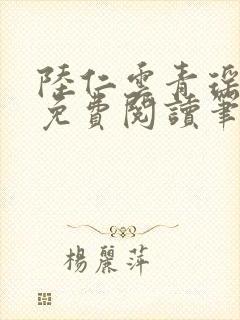 陸仁雲青瑤
免費閱讀筆
楊麗萍